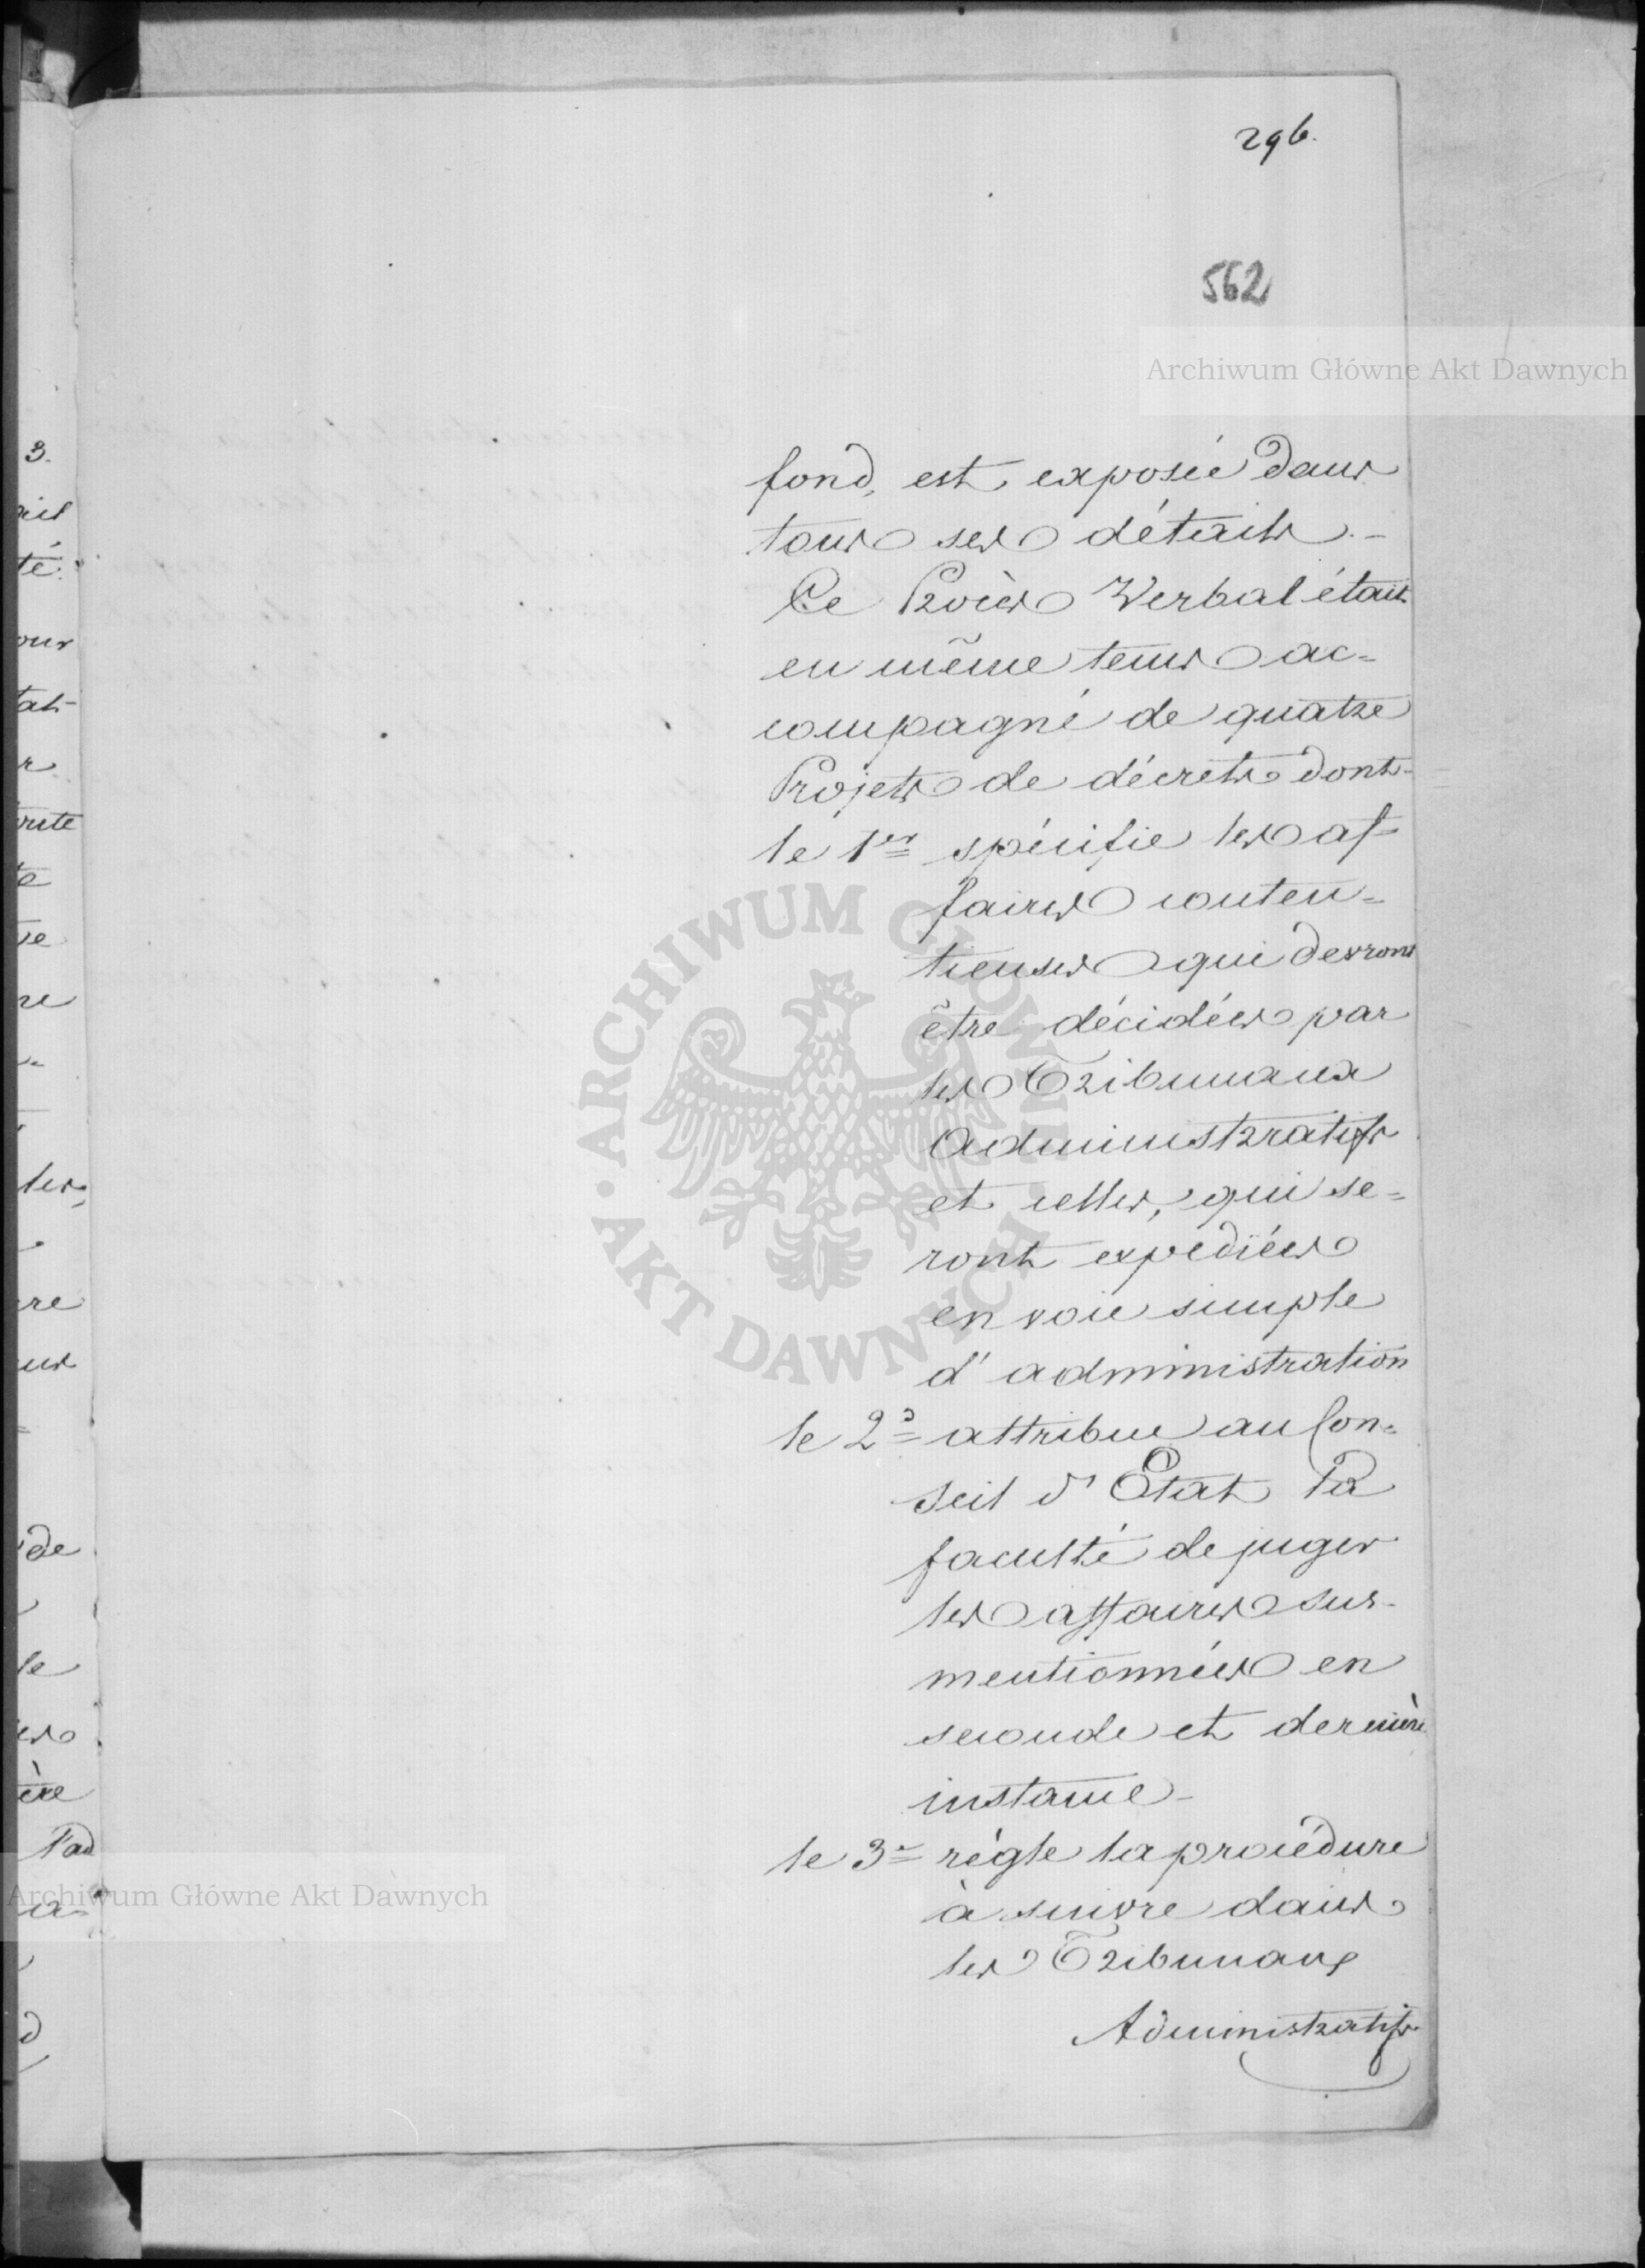 296.
562
Archiwum Główne Akt Dawnych
fond, est exposée dans
tous ses détails.-
Ce Procès Verbal était
en même tems ac=
compagné de quatre
Projets de décrets dont
le 1er spécifie les af=
faires conten=
tieuses qui devront
être décidées par
les Tribunaux
Administratifs
et celles, qui se=
ront expediées
en voie simple
d'administration
le 2d attribue au Con=
seil d'Etat la
faculté de juger
les affaires sus-
mentionnées en
seconde et dernière
instance-
le 3e règle la procédure
à suivre dans
les Tribunaux
Administratifs
ARCHIWUM GŁÓWNE · AKT DAWNYCH ·
Archiwum Główne Akt Dawnych